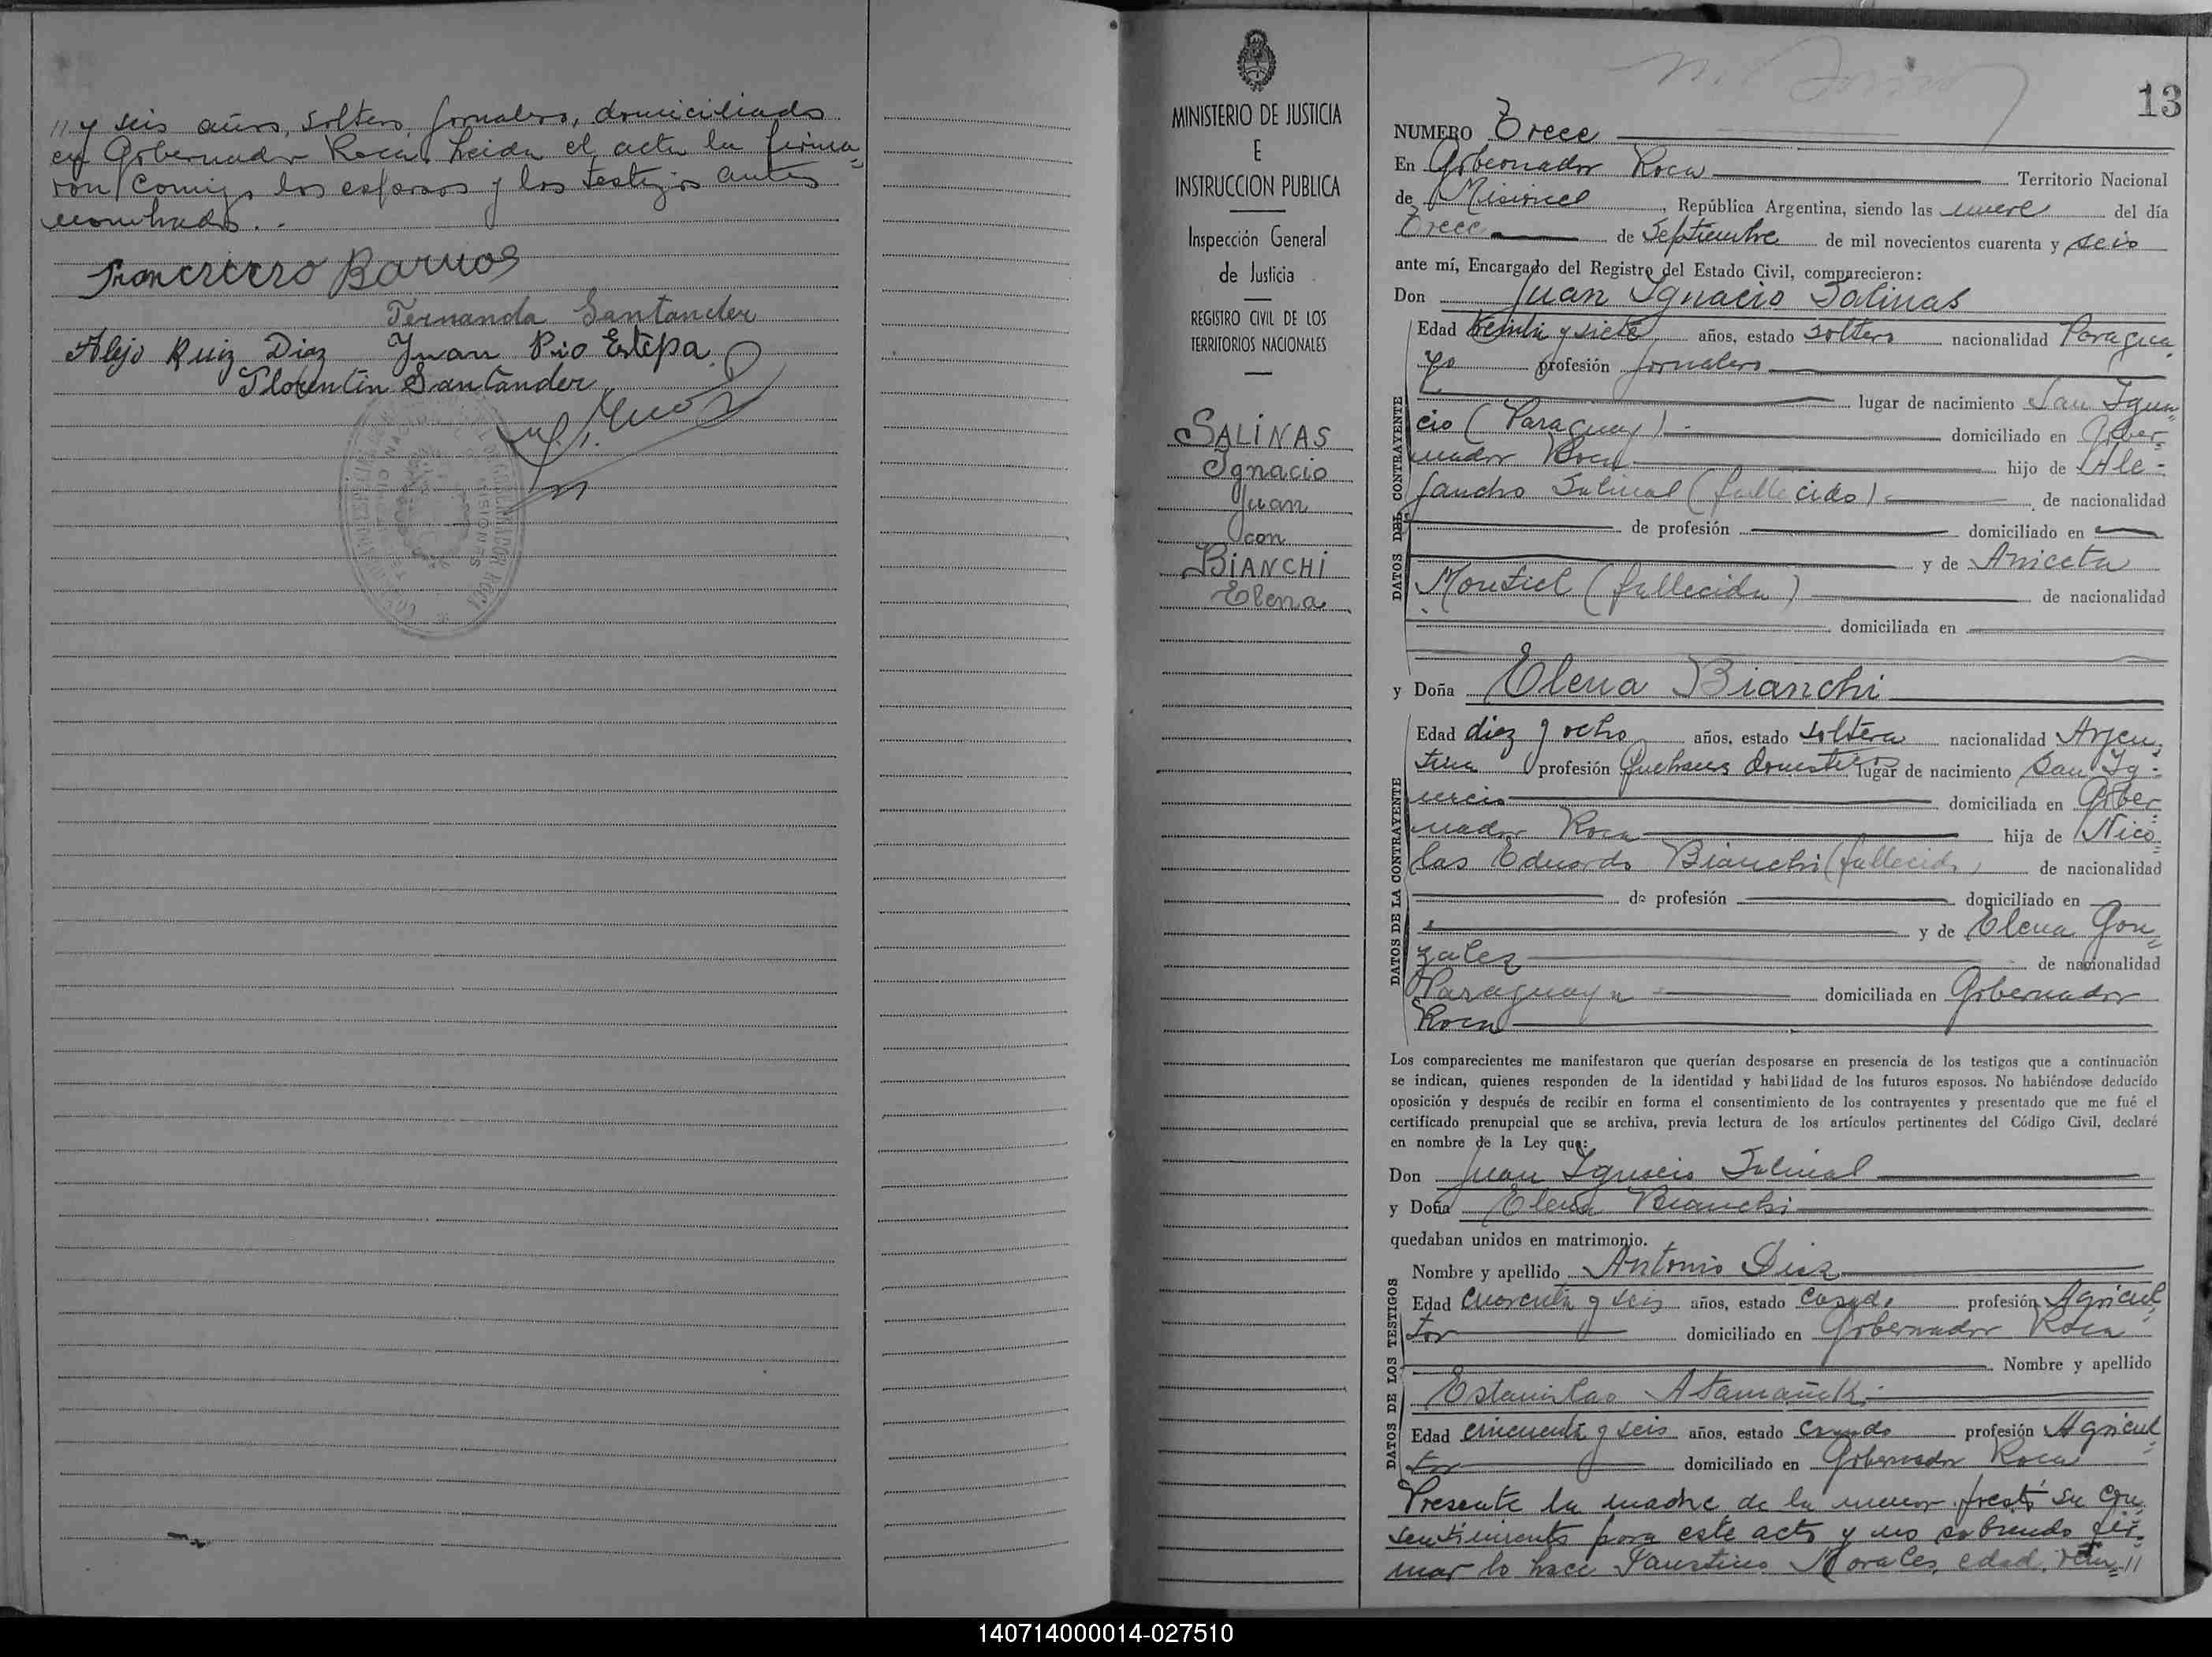 // y seis años, soltero, jornalero, domiciliado
en Gobernador Roca. Leida el acta la firma=
ron conmigo los esposos y los testigos antes
nombrados. -
Francisco Barrios
Fernanda Santander
Alejo Ruiz Diaz Juan Pio Estepa
Florentin Santander
MINISTERIO DE JUSTICIA
E
INSTRUCCION PUBLICA
Inspección General
de Justicia
REGISTRO CIVIL DE LOS
TERRITORIOS NACIONALES
SALINAS
Ignacio
Juan
con
BIANCHI
Elena
13
NUMERO Trece
En Gobernador Roca Territorio Nacional
de Misiones, República Argentina, siendo las nueve del día
Trece de Septiembre de mil novecientos cuarenta y seis
ante mí, Encargado del Registro del Estado Civil, comparecieron:
Don Juan Ignacio Salinas
DATOS DEL CONTRAYENTE
Edad y siete años, estado soltero nacionalidad Paragua
yo profesión jornalero
lugar de nacimiento San Igna=
cio (Paraguay) domiciliado en Gober=
nador Roca hijo de Ale=
jandro Salinas (fallecido) de nacionalidad
de profesión domiciliado en
y de Aniceta
Montiel (fallecida) de nacionalidad
domiciliada en
y Doña Elena Bianchi
DATOS DE LA CONTRAYENTE
Edad diez y ocho años, estado soltera nacionalidad Argen=
tina profesión Quehaceres domesticos lugar de nacimiento San Ig=
nacio domiciliada en Gober=
nador Roca hija de Nico=
las Eduardo Bianchi (fallecido) de nacionalidad
de profesión domiciliado en
y de Elena Gon=
zalez de nacionalidad
Paraguaya domiciliada en Gobernador
Roca
Los comparecientes me manifestaron que querían desposarse en presencia de los testigos que a continuación
se indican, quienes responden de la identidad y habilidad de los futuros esposos. No habiéndose deducido
oposición y después de recibir en forma el consentimiento de los contrayentes y presentado que me fué el
certificado prenupcial que se archiva, previa lectura de los artículos pertinentes del Código Civil, declaré
en nombre de la Ley que:
Don Juan Ignacio Salinas
y Doña Elena Bianchi
quedaban unidos en matrimonio.
DATOS DE LOS TESTIGOS
Nombre y apellido Antonio Diaz
Edad cuarenta y seis años, estado casado profesión Agricul=
tor domiciliado en Gobernador Roca
Nombre y apellido
Estanislao Atamañuk
Edad cincuenta y seis años, estado casado profesión Agricul=
tor domiciliado en Gobernador Roca
Presente la madre de la menor prestó su con=
sentimiento para este acto y no sabiendo fir=
mar lo hace Faustino Morales, edad, //
140714000014-027510